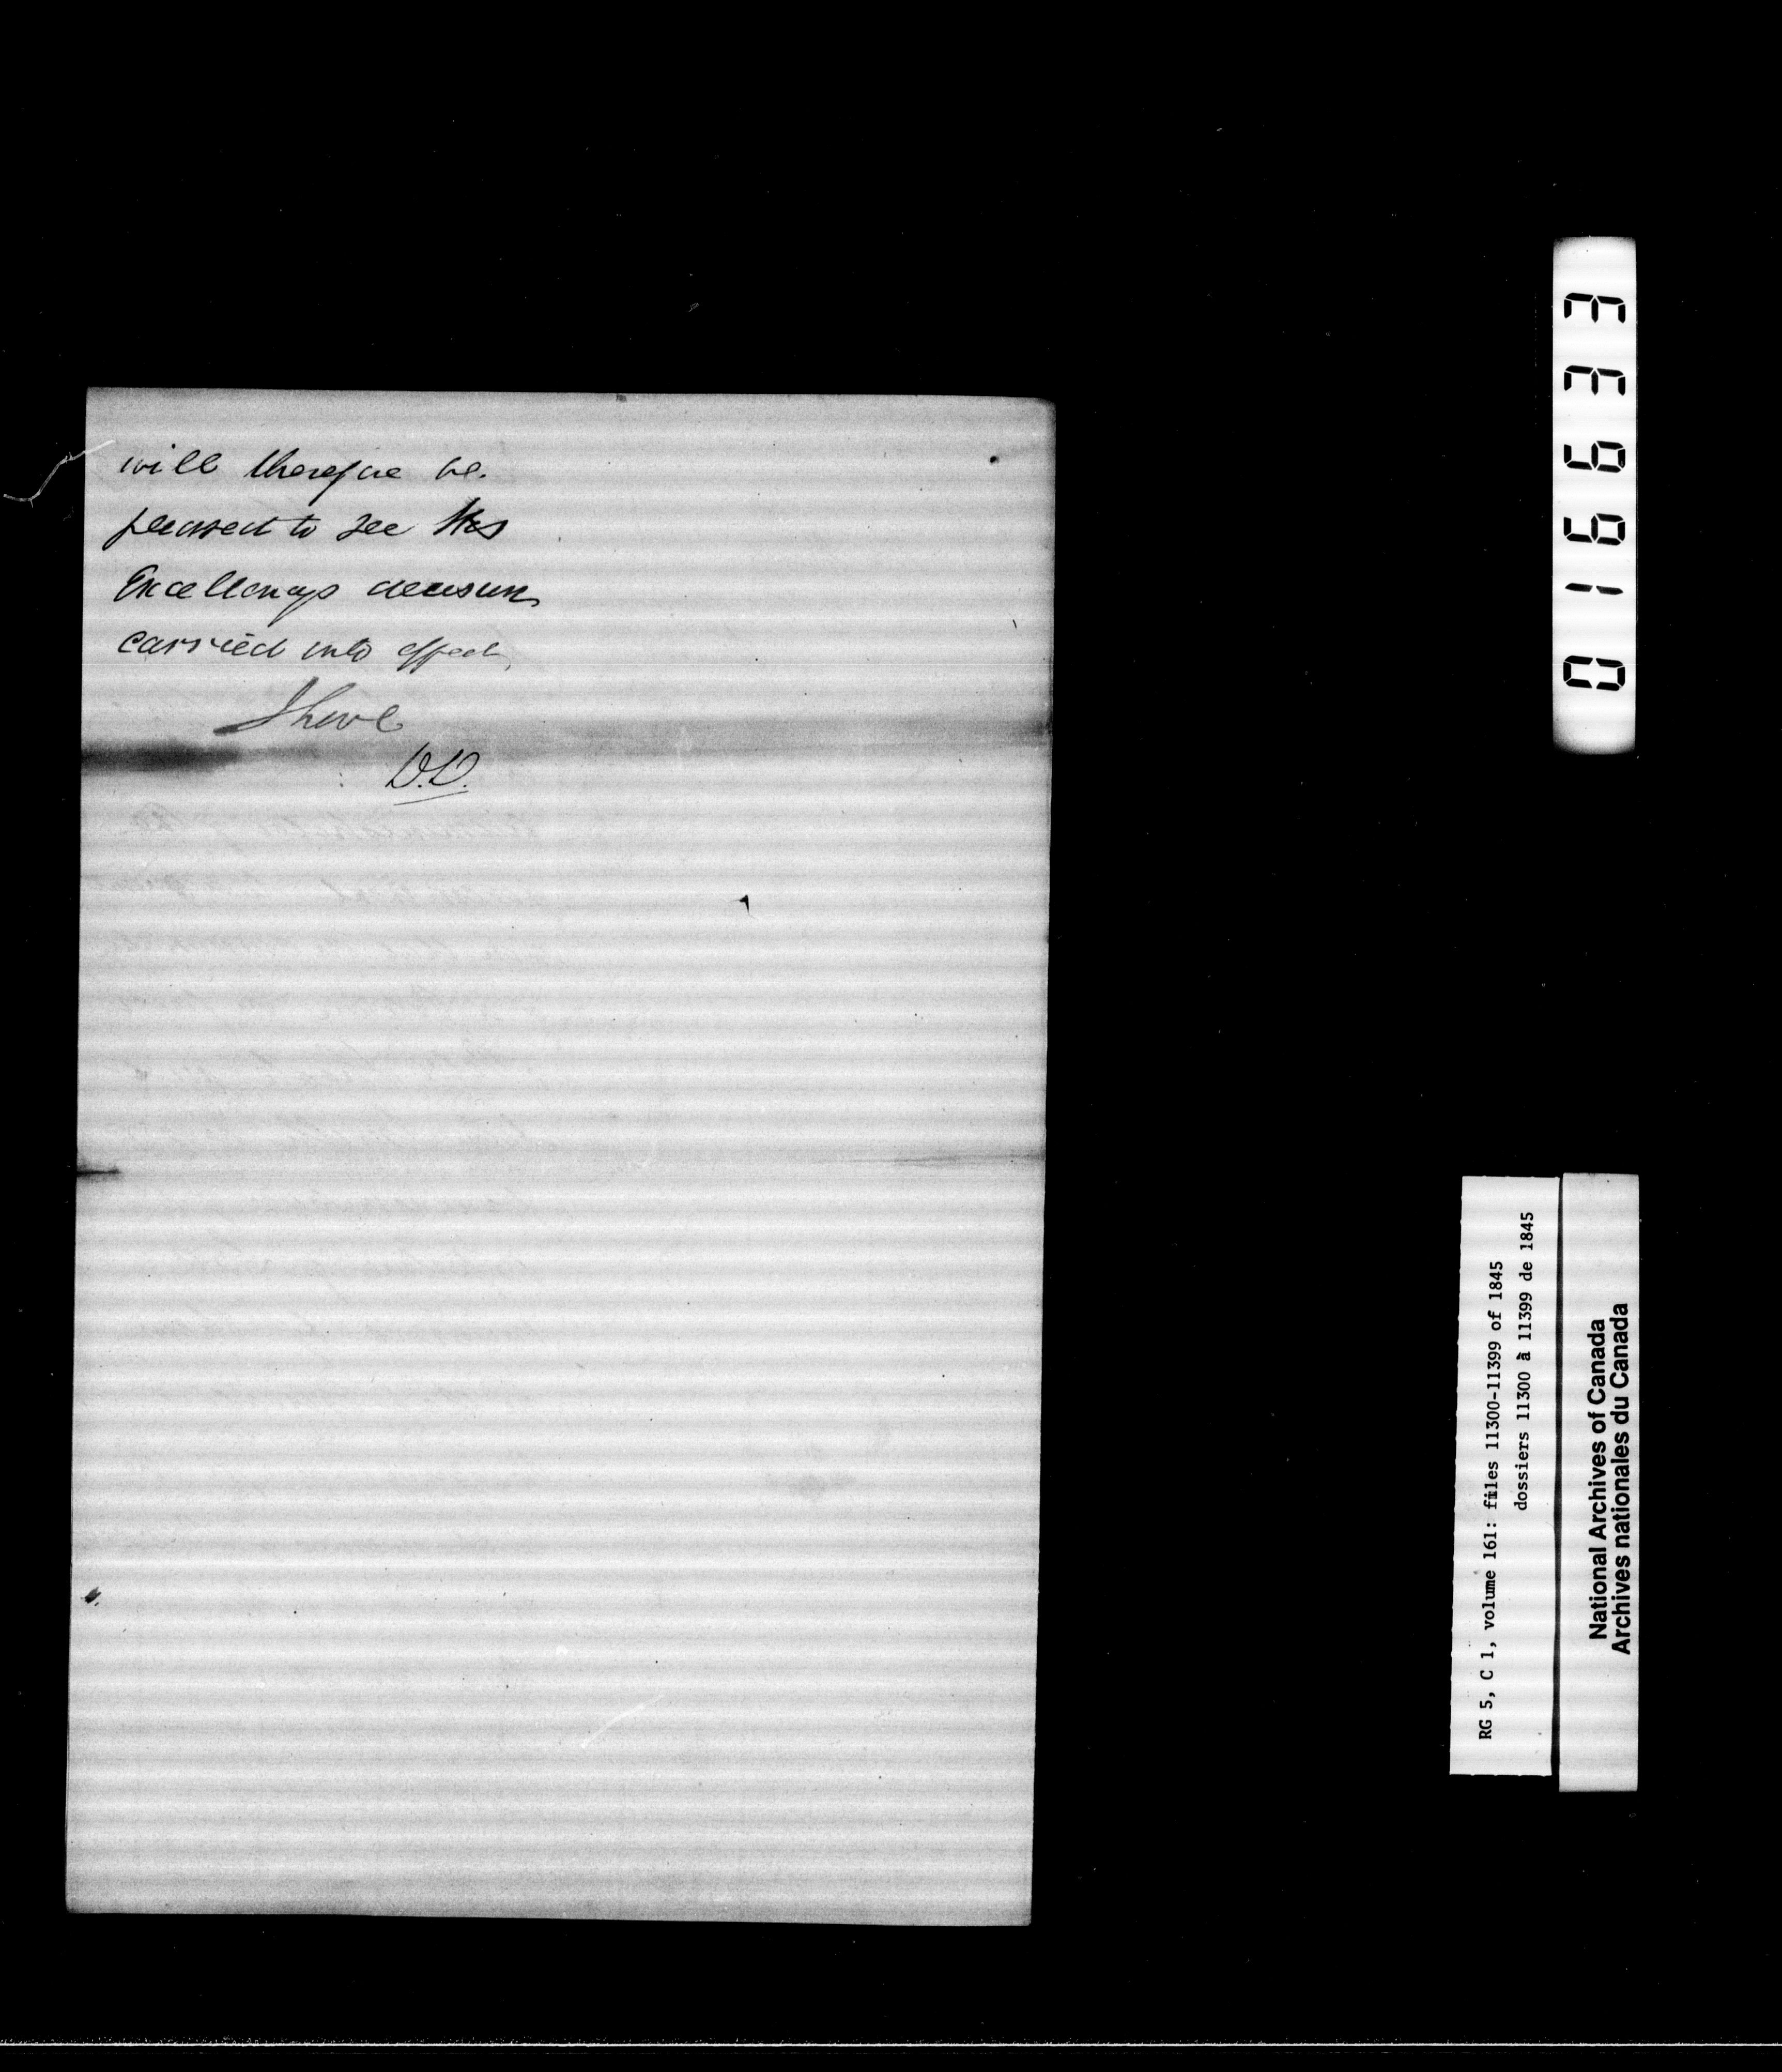 will therefore be
pleased to see His
Excellencys decision
carried into effect,
I have
D.D.
016633
RG 5, C 1, volume 161: files 11300-11399 of 1845
dossiers 11300 à 11399 de 1845
National Archives of Canada
Archives nationales du Canada